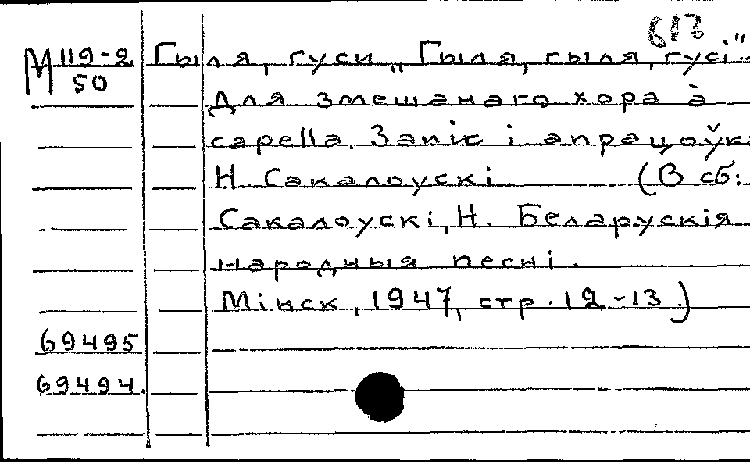 613
М 119-2 Гыля, гуси „Гыля, гыля, гусі"
50
Для змешанаго хора à
capella. Запіс і апрацоўка
Н. Сакалоускі (В сб:
Сакалоускі, Н. Беларускія
народныя песні.
Мінск, 1947, стр. 12-13.)
69495
69494.